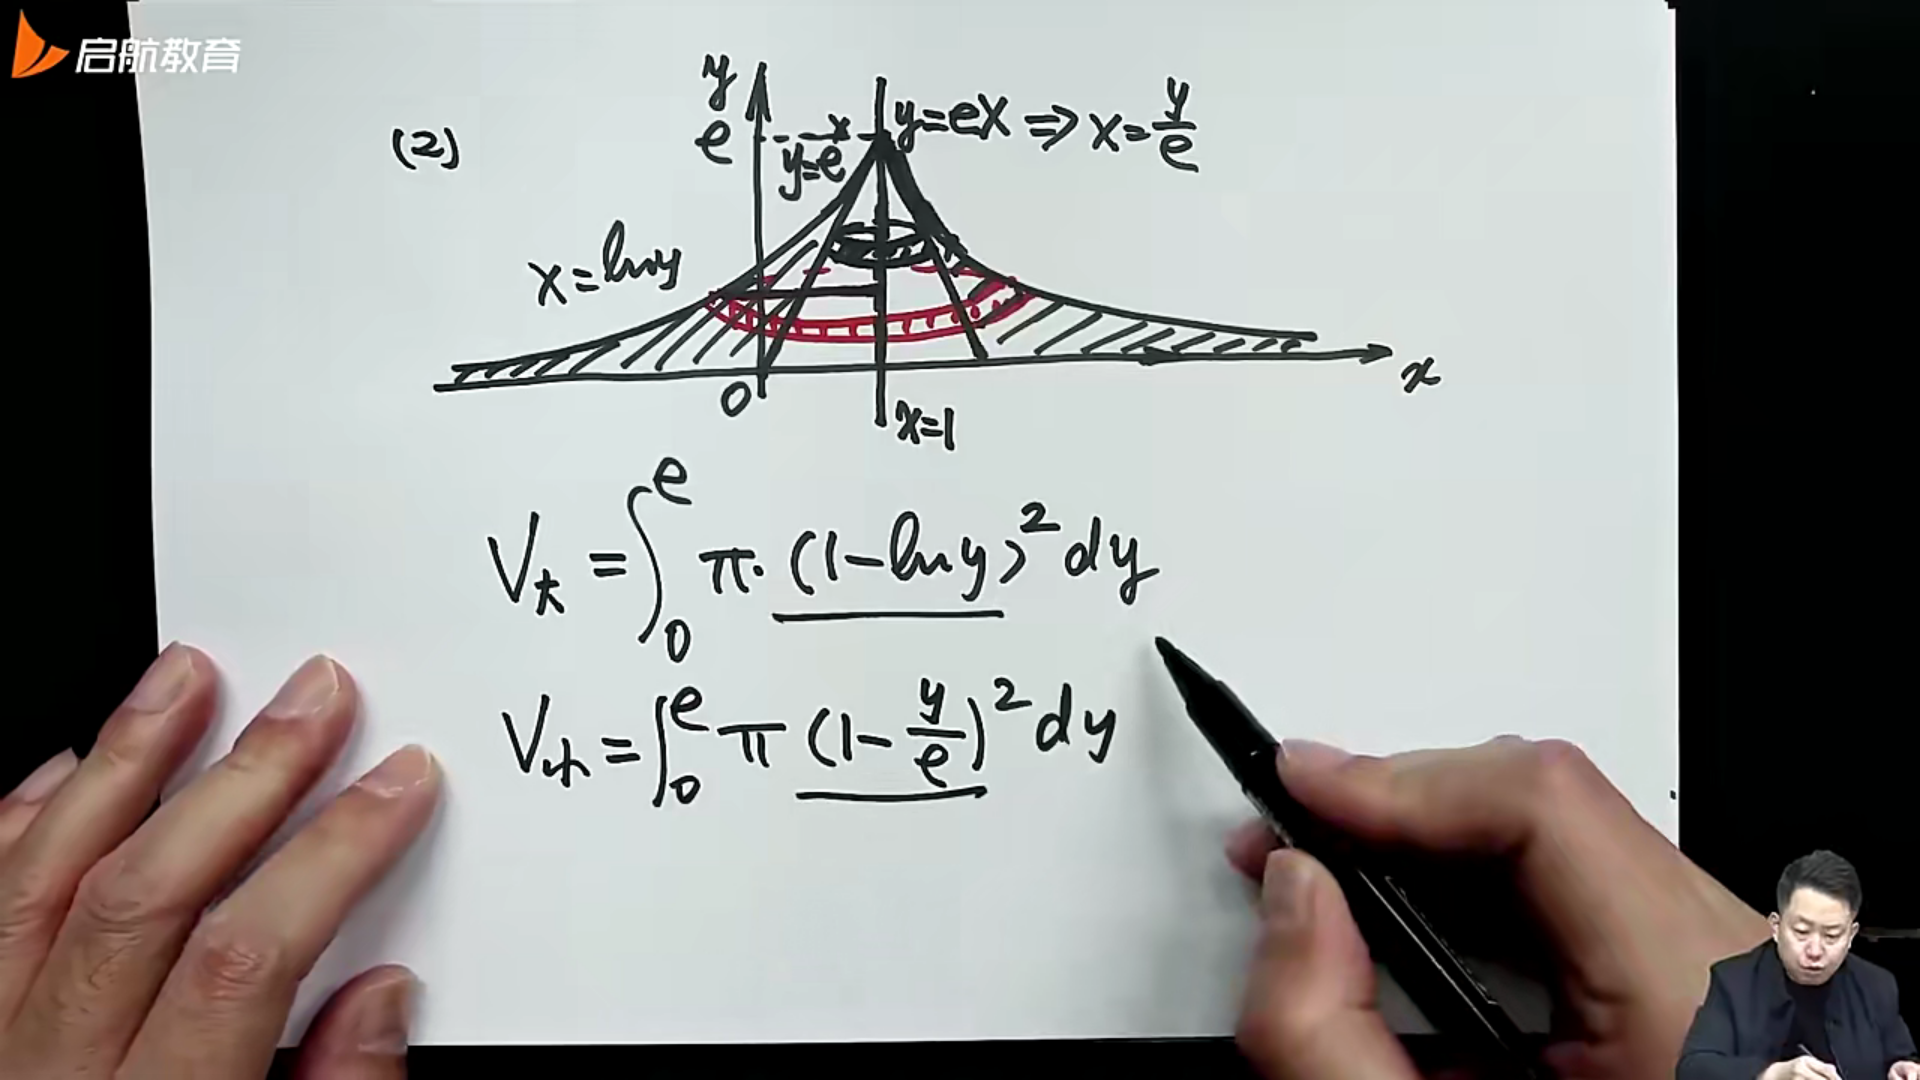 启航教育
y
e
(2)
y=e^x
y=ex ⇒ x=y/e
x=lny
O
x=1
x
V大 = ∫₀^e π·(1-lny)²dy
V小 = ∫₀^e π(1-y/e)²dy